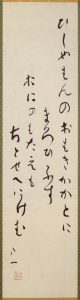 びしやもんのおもきかかとに
まろびふす
おにのもだえも
ちとせへにけむ